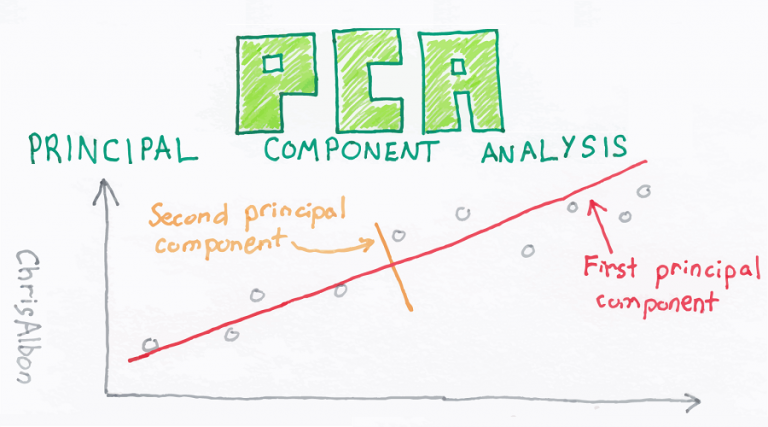 PCA
PRINCIPAL COMPONENT ANALYSIS
Second principal
component
First principal
component
ChrisAlbon